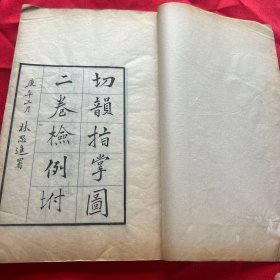 切韻指掌圖
二卷檢例坿
庚午二月 林思進署